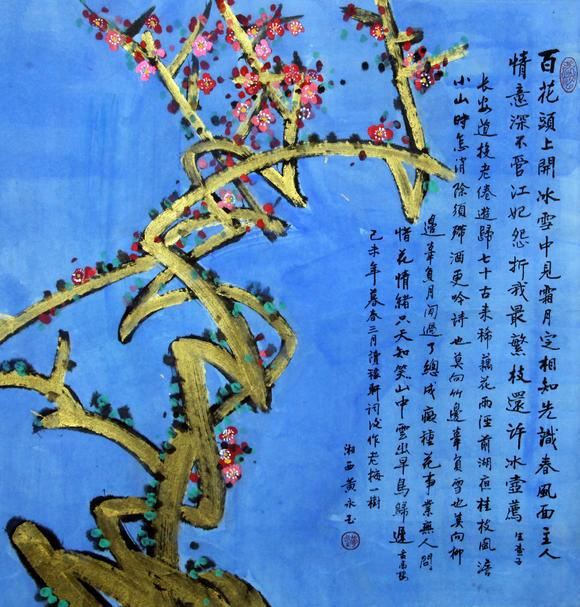 百花頭上開冰雪中見霜月定相知先識春風面主人
情意深不管江妃怨折我最繁枝還許冰壺薦 生查子
長安道投老倦遊歸七十古來稀藕花雨溼前湖夜桂枝風澹
小山時怎消除須殢酒更吟詩也莫向竹邊辜負雪也莫向柳
邊辜負月间過了總成癡種花事業無人問
惜花情緒只天知笑山中雲出早鳥歸遲
己未年暮春三月讀稼軒詞後作老梅一樹
湘西黃永玉